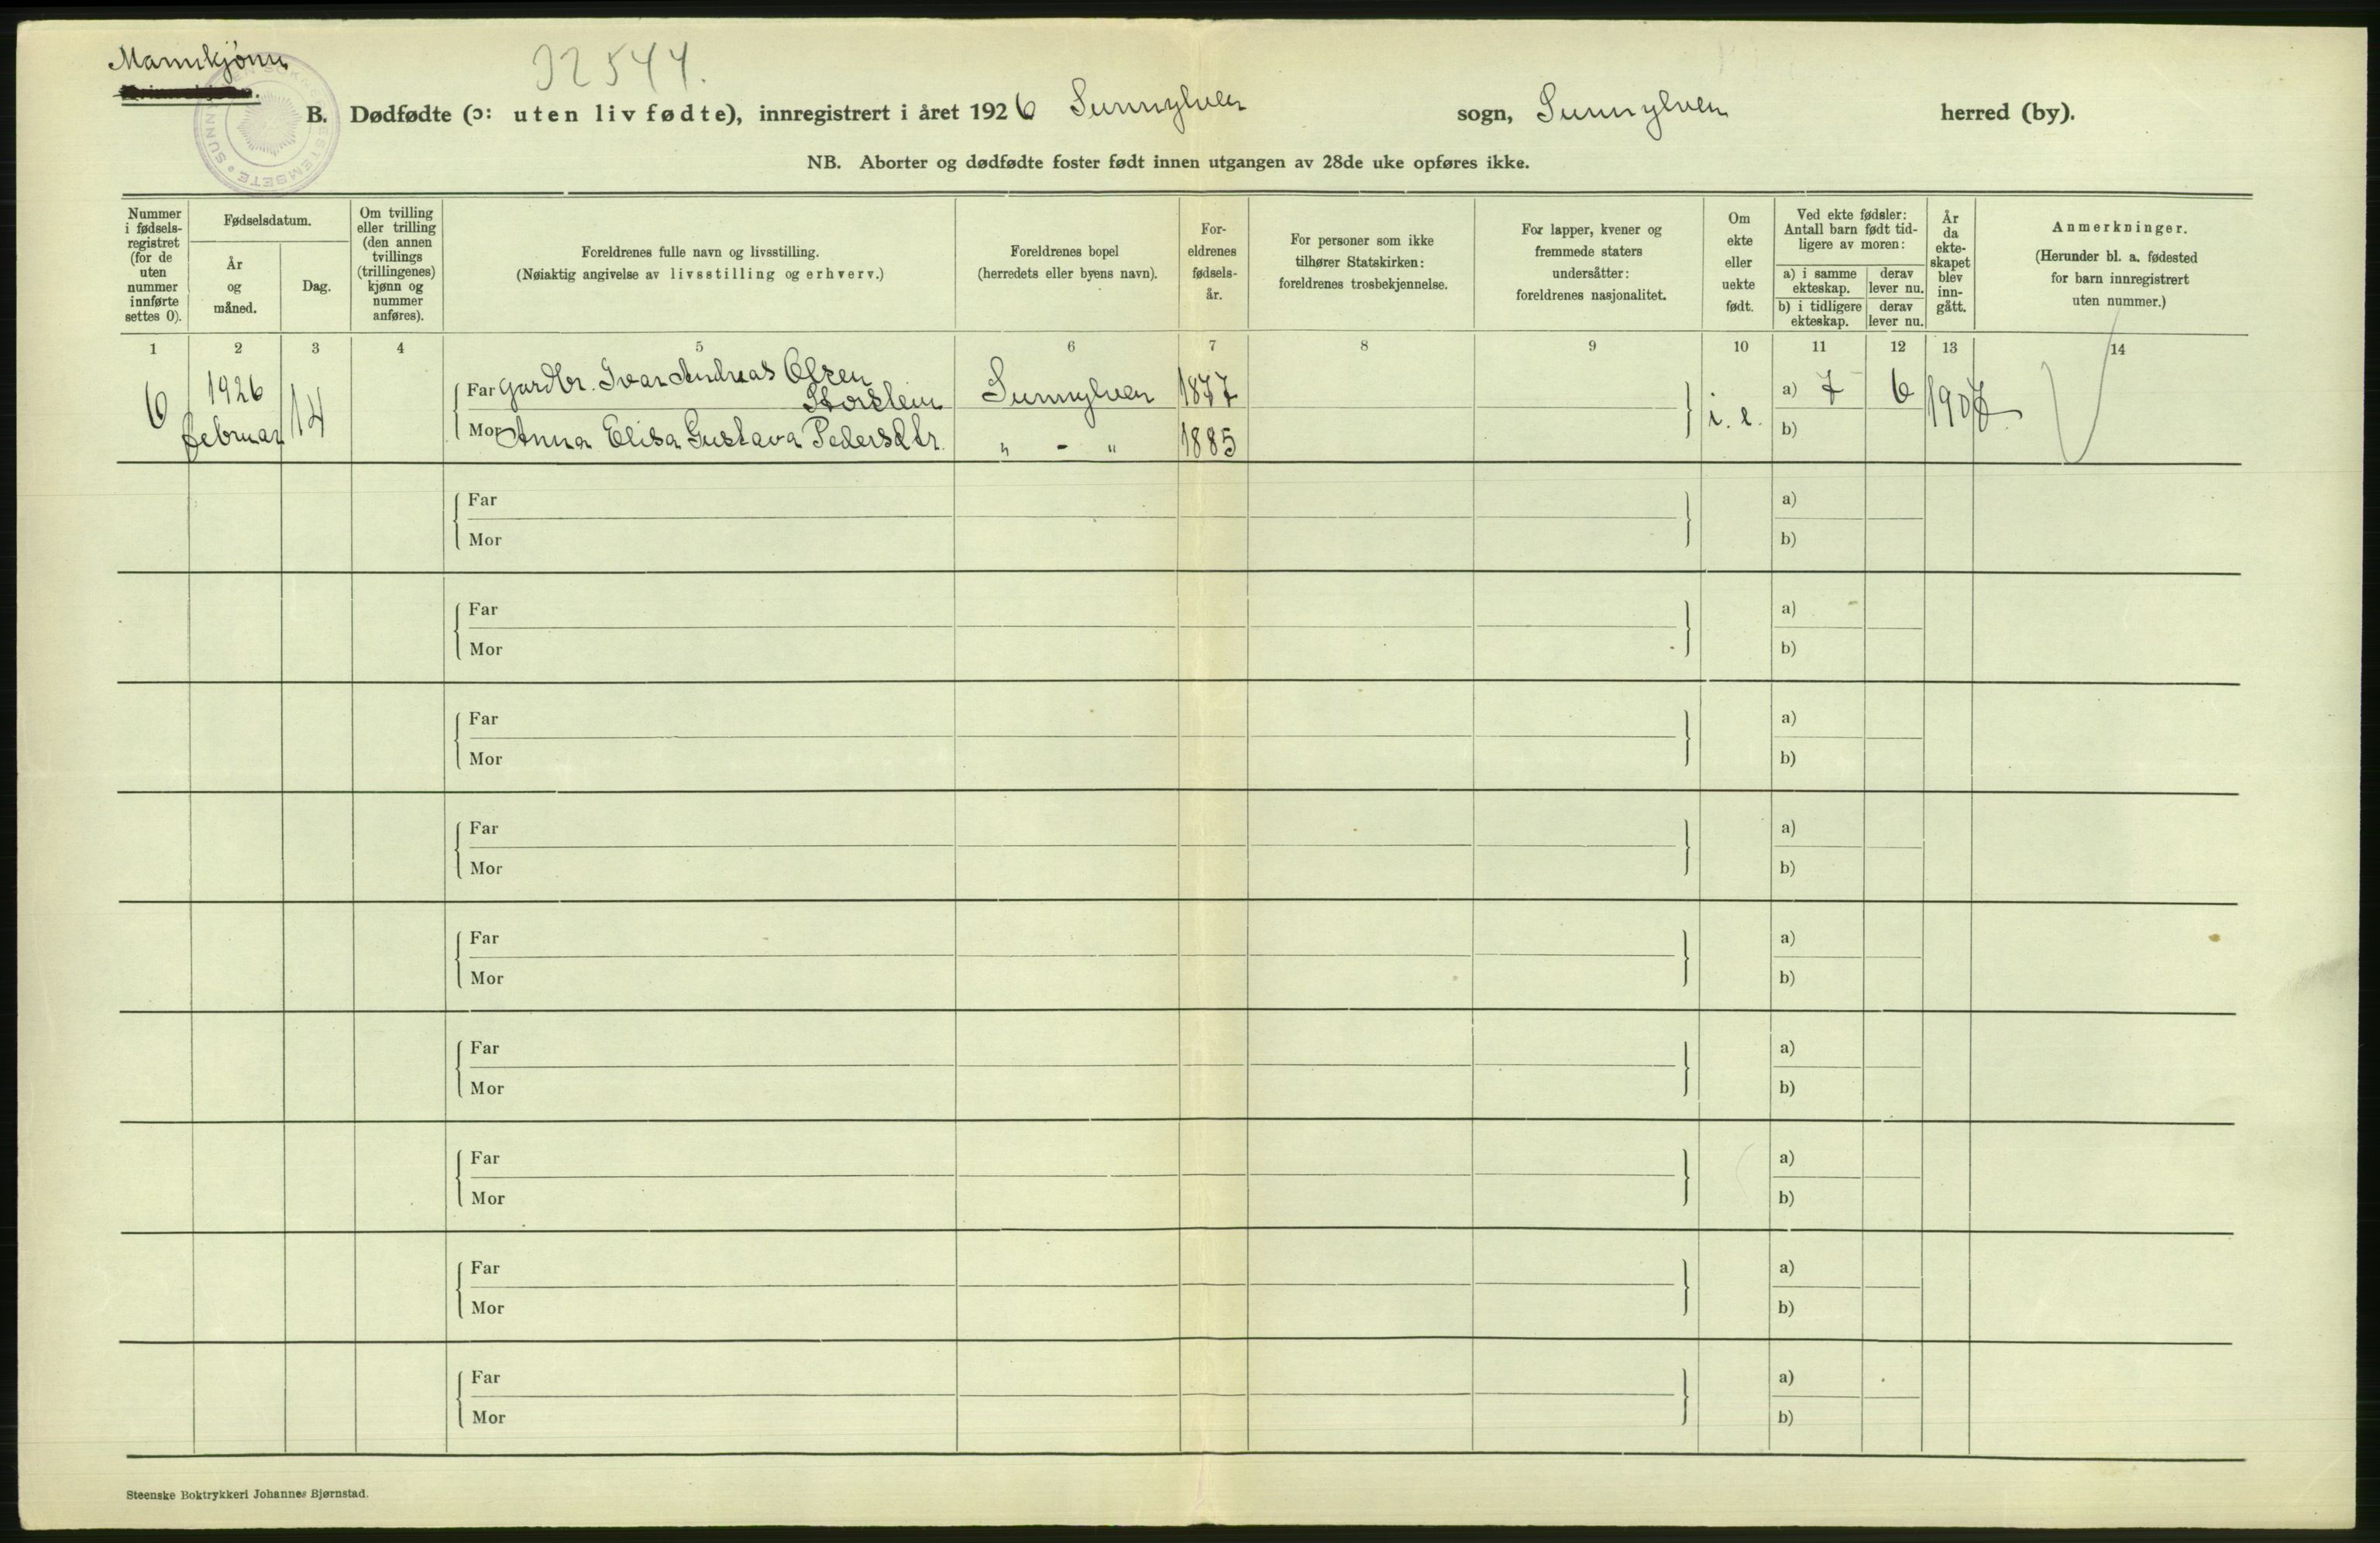 Mannkjønn
32544.
B. Dødfødte (ɔ: uten liv fødte), innregistrert i året 1926 Sunnylven sogn, Sunnylven herred (by).
NB. Aborter og dødfødte foster født innen utgangen av 28de uke opføres ikke.
Nummer i fødsels-registret (for de uten nummer innførte settes 0).
Fødselsdatum.
År og måned.
Dag.
Om tvilling eller trilling (den annen tvillings (trillingenes) kjønn og nummer anføres).
Foreldrenes fulle navn og livsstilling.
(Nøiaktig angivelse av livsstilling og erhverv.)
Foreldrenes bopel
(herredets eller byens navn).
For-eldrenes fødsels-år.
For personer som ikke tilhører Statskirken: foreldrenes trosbekjennelse.
For lapper, kvener og fremmede staters undersåtter: foreldrenes nasjonalitet.
Om ekte eller uekte født.
Ved ekte fødsler: Antall barn født tid-ligere av moren:
a) i samme ekteskap.
derav lever nu.
b) i tidligere ekteskap.
derav lever nu.
År da ekte-skapet blev inn-gått.
Anmerkninger.
(Herunder bl. a. fødested for barn innregistrert uten nummer.)
1 2 3 4 5 6 7 8 9 10 11 12 13 14
6 1926 februar 14
Far Gardbr. Ivar Andreas Olsen Sunnylven 1877 i. e. a) 7 6 1907
Mor Anna Elisa Gustava Pedersdtr. " - " 1885 b)
Far a)
Mor b)
Far a)
Mor b)
Far a)
Mor b)
Far a)
Mor b)
Far a)
Mor b)
Far a)
Mor b)
Far a)
Mor b)
Far a)
Mor b)
Far a)
Mor b)
Steenske Boktrykkeri Johannes Bjørnstad.